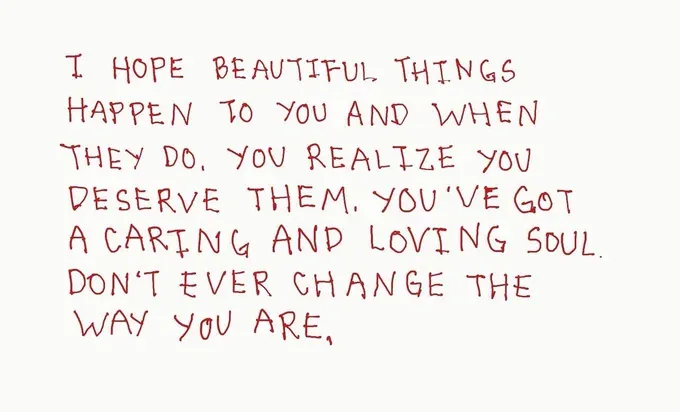 I HOPE BEAUTIFUL THINGS
HAPPEN TO YOU AND WHEN
THEY DO. YOU REALIZE YOU
DESERVE THEM. YOU'VE GOT
A CARING AND LOVING SOUL.
DON'T EVER CHANGE THE
WAY YOU ARE.